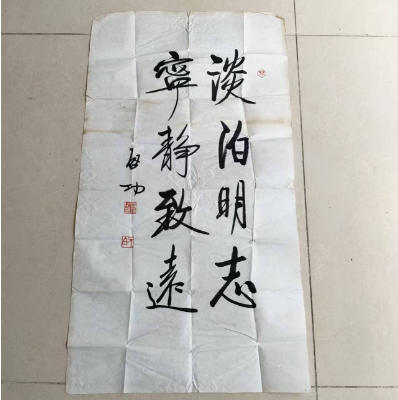 淡泊明志
寧静致遠
啟功